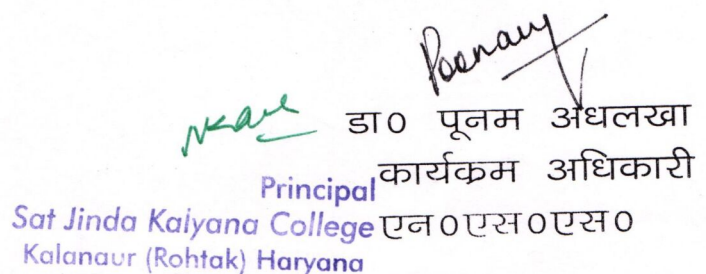 Poonam
डा० पूनम अधलखा
कार्यक्रम अधिकारी
एन०एस०एस०
Principal
Sat Jinda Kalyana College
Kalanaur (Rohtak) Haryana